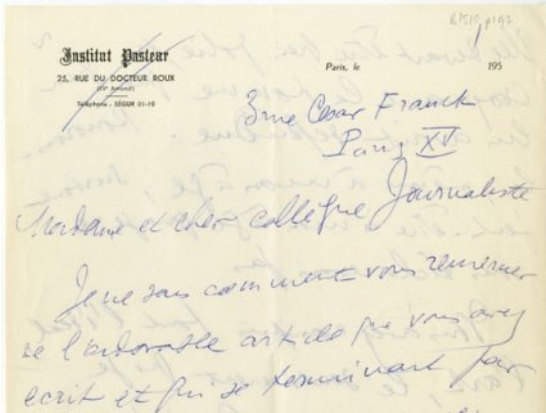 Institut Pasteur
25, RUE DU DOCTEUR ROUX
(XVe Arrondt)
Téléphone : SÉGUR 01-10
Paris, le 195
3 rue Cesar Franck
Paris XV
Madame et cher collègue Journaliste
Je ne sais comment vous remercier
de l'adorable article que vous avez
ecrit et qui se terminait par